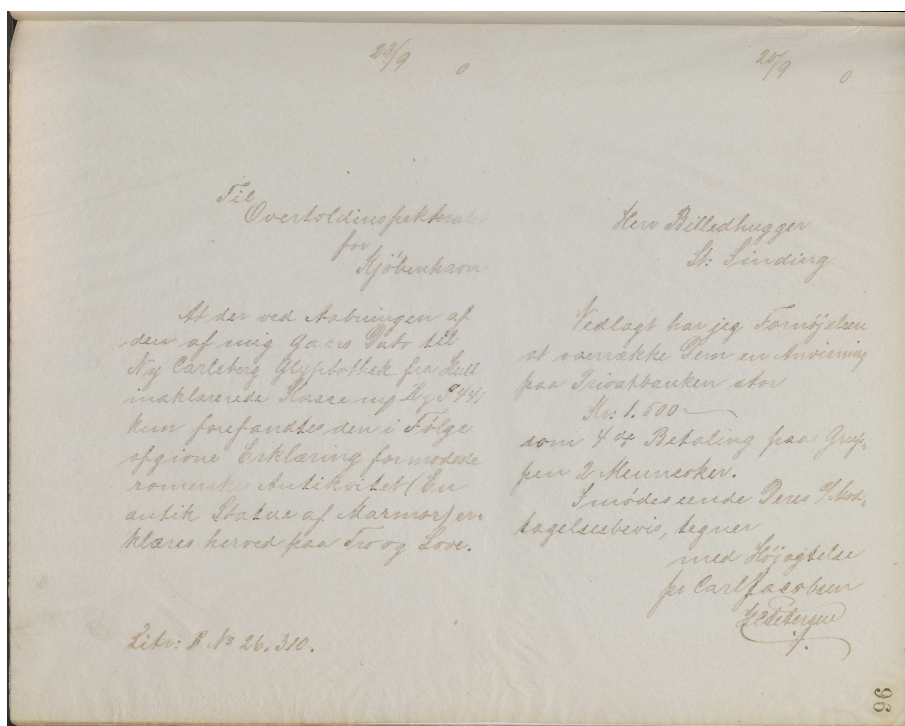 23/9 0
Til
Overtoldinspektoratet
for
Kjöbenhavn
At der ved Aabningen af
den af mig Gaars Dato til
Ny Carlsberg Glyptothek fra Hull
indklarerede Kasse
kun forefandtes den i Følge
afgivne Erklæring formodede
romerske Antikvitet (En
antik Statue af Marmor) er-
klæres herved paa Tro og Love.
Litr: B No 26.310.
20/9 0
Herr Billedhugger
St: Sinding
Vedlagt har jeg Fornøjelsen
at overrække Dem en Anvisning
paa Privatbanken stor
Kr: 1.500
som 4de Betaling paa Grup-
pen 2 Mennesker.
Imødeseende Deres Mod-
tagelsesbevis, tegner
med Højagtelse
pr Carl Jacobsen
HCPetersen
96